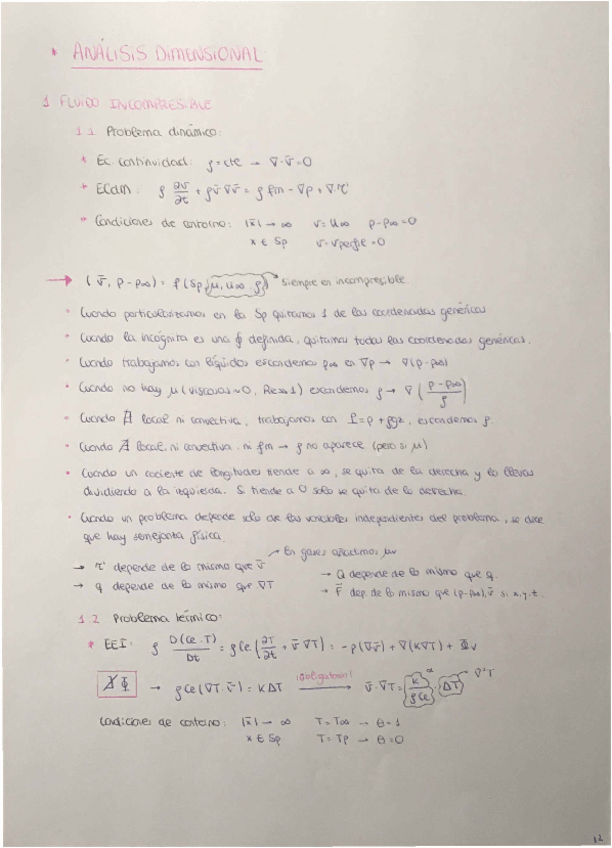 * ANÁLISIS DIMENSIONAL
1 FLUIDO INCOMPRESIBLE
1.1 Problema dinámico:
* Ec. continuidad: ρ = cte → ∇·v̄ = 0
* ECdM: ρ ∂v/∂t + ρv̄·∇v̄ = ρ fm - ∇p + ∇·τ'
* Condiciones de contorno: |x̄| → ∞ v = U∞ p - p∞ = 0
x ∈ Sp v = vperfil = 0
→ (v̄, p - p∞) = f(Sp, μ, u∞, ρ) → siempre en incompresible
• Cuando particularizamos en la Sp quitamos 1 de las coordenadas genéricas
• Cuando la incógnita es una ∮ definida, quitamos todas las coordenadas genéricas.
• Cuando trabajamos con líquidos escondemos p∞ en ∇p → ∇(p - p∞)
• Cuando no hay μ (viscosas ~ 0, Re >> 1) escondemos ρ → ∇((p - p∞)/ρ)
• Cuando ∄ local ni convectiva, trabajamos con P = p + ρgz, escondemos ρ.
• Cuando ∄ local, ni convectiva, ni fm → ρ no aparece (pero si μ)
• Cuando un cociente de longitudes tiende a ∞, se quita de la derecha y lo llevas
dividiendo a la izquierda. Si tiende a 0 solo se quita de la derecha.
• Cuando un problema depende solo de las variables independientes del problema, se dice
que hay semejanza física.
→ En gases añadimos μv
→ τ' depende de lo mismo que v̄
→ Q depende de lo mismo que q.
→ q depende de lo mismo que ∇T
→ F̄ dep. de lo mismo que (p-p∞), v̄ si x, y, t.
1.2 Problema térmico:
* EEI: ρ D(Ce·T)/Dt = ρCe(∂T/∂t + v̄·∇T) = -p(∇·v̄) + ∇(K∇T) + Φv
∄ Φ → ρCe(∇T·v̄) = KΔT ¡obligatorio! → v̄·∇T = K/ρCe · ΔT α ∇²T
Condiciones de contorno: |x̄| → ∞ T = T∞ → θ = 1
x ∈ Sp T = Tp → θ = 0
12